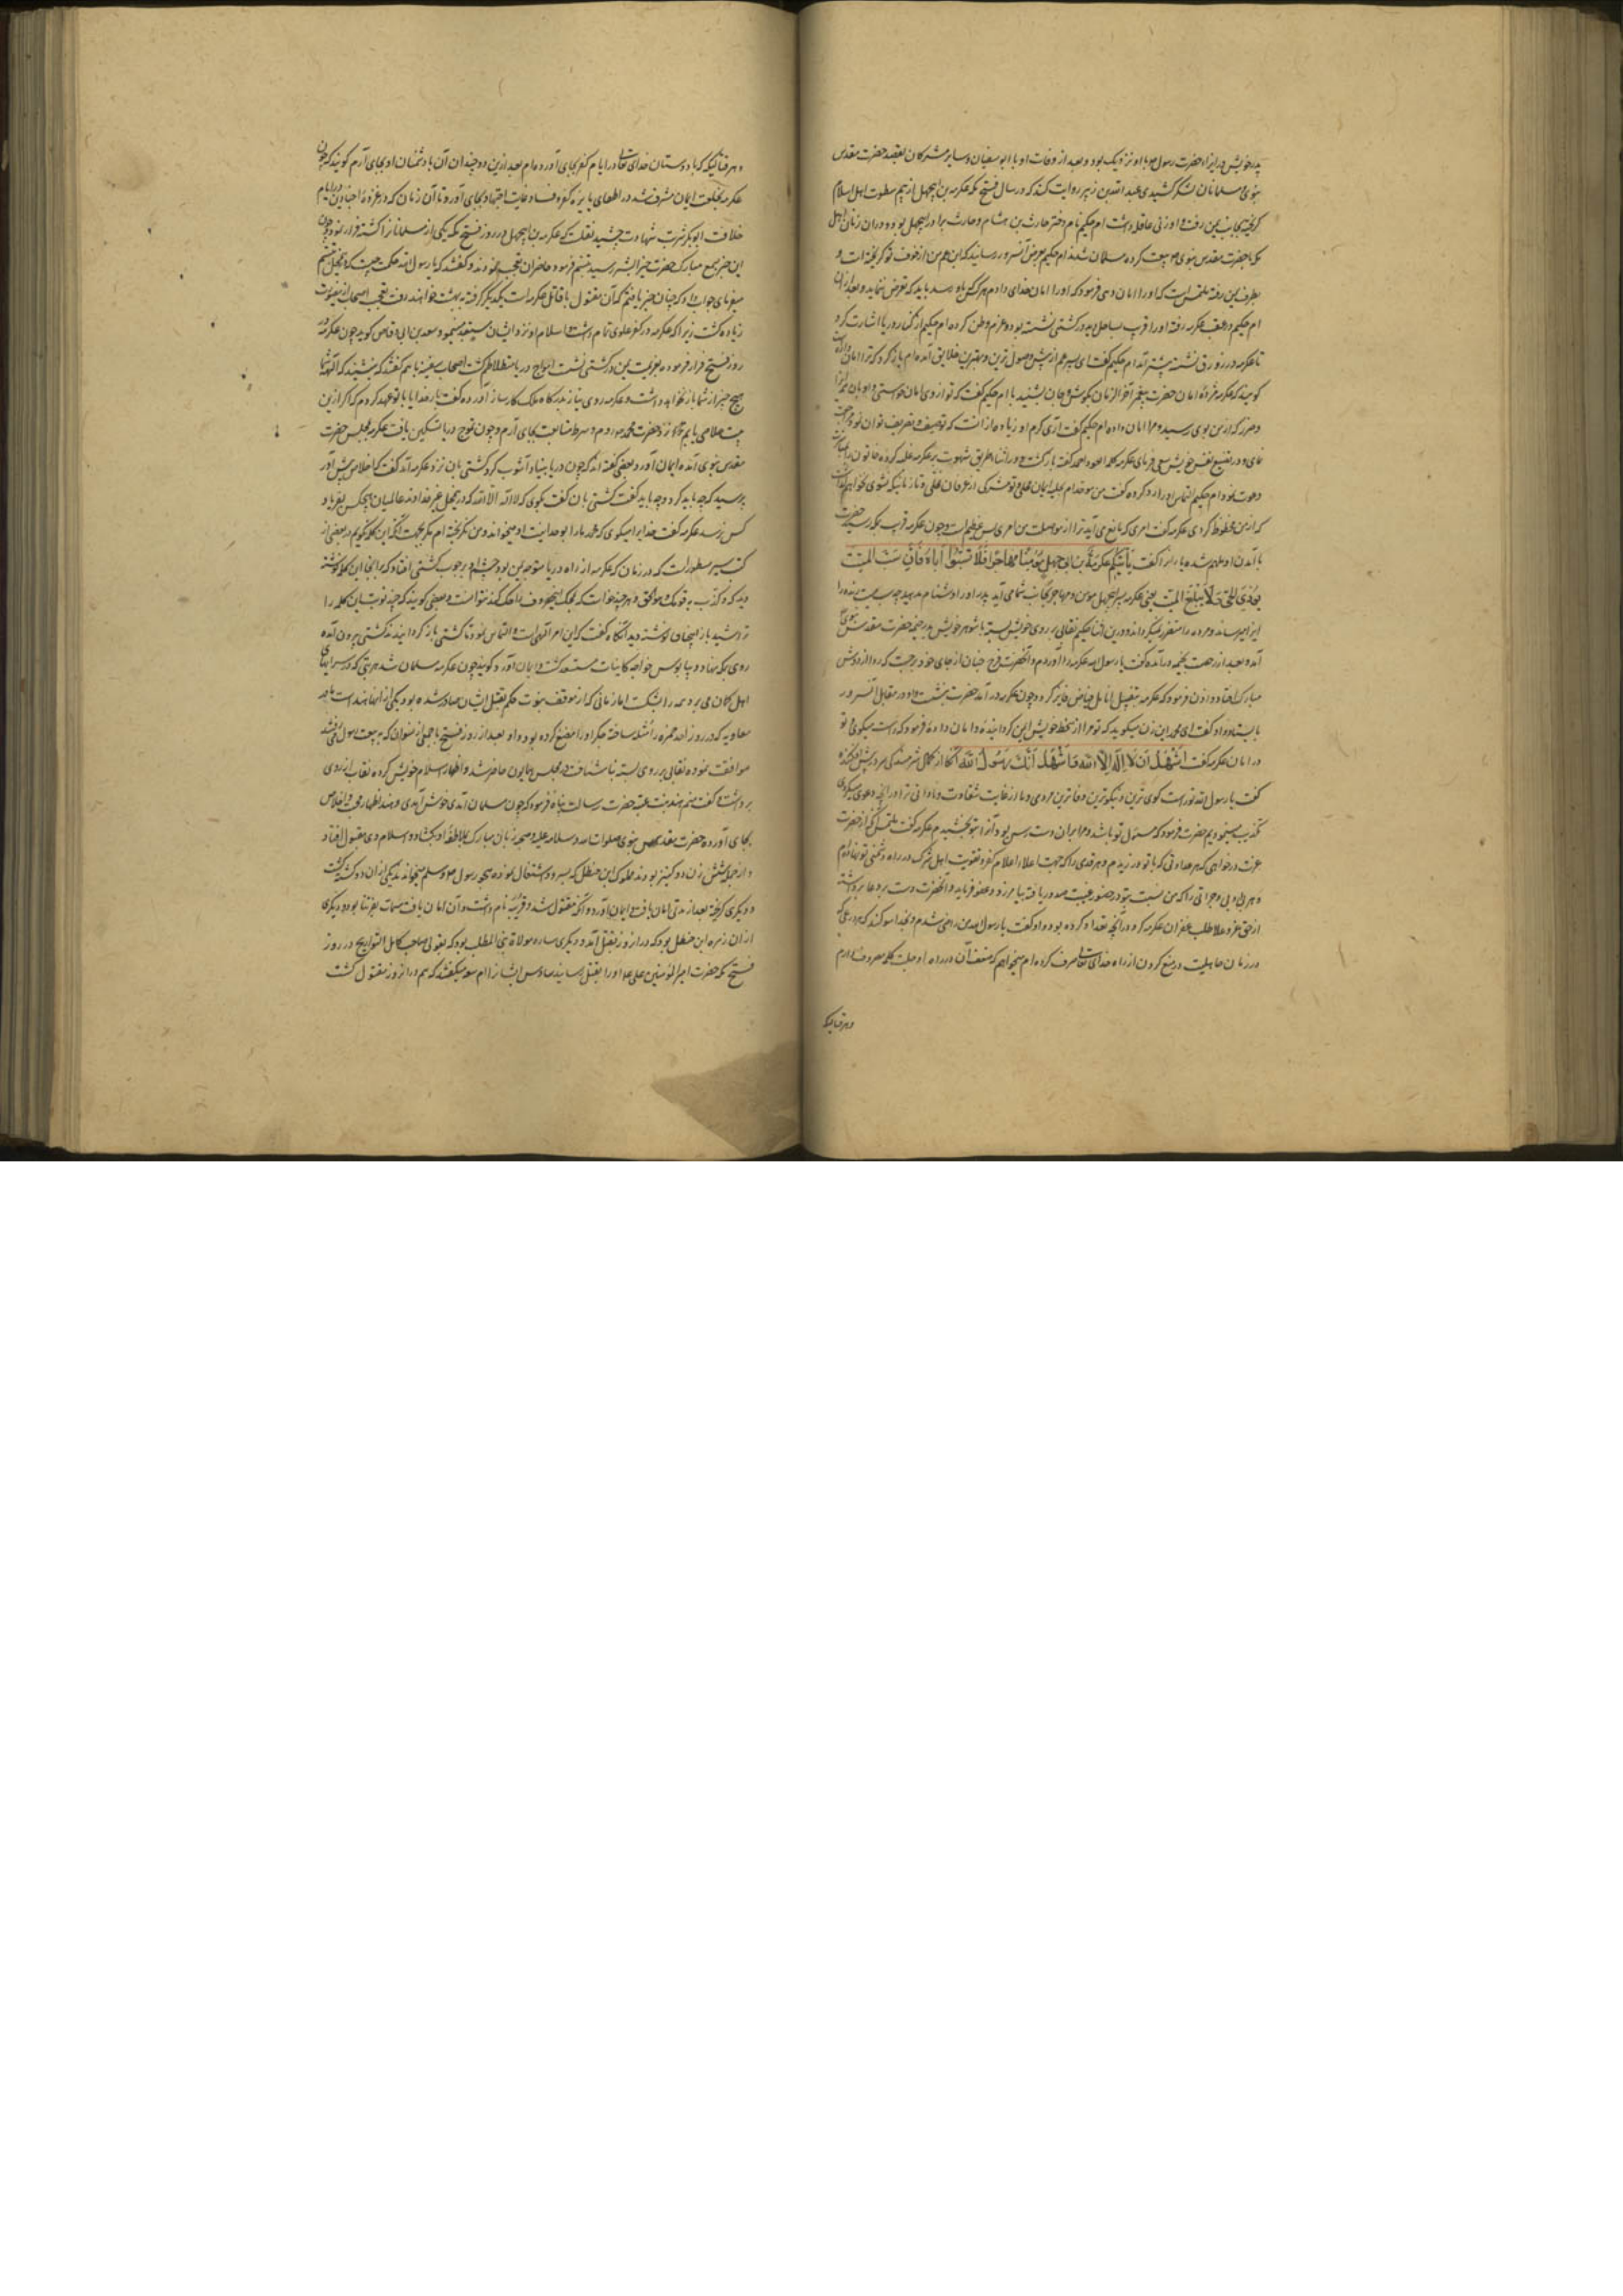 پدر خویش در ایذاء حضرت رسول با او نزدیک بود و بعد از وفات او با ابوسفیان و سایر مشرکان بقصد حضرت مقدس
نبوی و مسلمانان لشکر کشیدی عبدالله بن زبیر روایت کند که در سال فتح مکه عکرمه بن ابیجهل از بیم سطوت اهل اسلام
گریخته بجانب یمن رفت و او زنی عاقله داشت ام حکیم نام دختر حارث بن هشام و حارث برادر ابیجهل بود و در آن زمان اهل
مکه با حضرت مقدس نبوی بیعت کرده مسلمان شدند ام حکیم بعرض آن سرور رسانید که ابن عم من از خوف تو گریخته است و
بطرف یمن رفته ملتمس است که او را امان دهی فرمود که او را امان خدای دادم هر کس باو رسد باید که تعرض ننماید و بعد از آن
ام حکیم در عقب عکرمه رفته او را قریب بساحل در کشتی نشسته بود و عزم وطن کرده ام حکیم از کنار دریا اشارت کرد
تا عکرمه در زورق نشسته پیشتر آمد ام حکیم گفت ای پسر عم از پیش وصول ترین و بهترین خلایق آمده ام باز گرد که ترا امان داده
گویند که عکرمه مژدهٔ امان حضرت پیغمبر آخر الزمان بگوش جان بشنید با ام حکیم گفت که تو از وی امان خواستی
و ضرر که از من بوی رسید مرا امان داده ام حکیم گفت آری کرم او زیاده از آنست که توصیف و تعریف توان نمود
گفته بازگشت و در اثناء طریق شهوت بر عکرمه غلبه کرده خاتون را
دعوت نمود ام حکیم التماس او را رد کرده گفت من موحدام بحلیه ایمان محلی و تو مشرکی از عرفان
که از من محظوظ گردی عکرمه گفت امری که مانع می آید ترا از مواصلت من امری بس عظیم است و چون عکرمه قریب بمکه رسید حضرت
بآمدن او ملهم شده یارانرا گفت یَأتِیکُم عِکرِمَةُ بن ابی جهلٍ مُؤمِنًا مُهاجِرًا فَلَا تَسُبُّوا اَبَاهُ فَاِنَّ سَبَّ المَیّت
یُؤذِی الحَیّ وَ لَا یَبلُغُ المَیّت یعنی عکرمه پسر ابیجهل مومن و مهاجر بجانب شما می آید پدر او را دشنام مدهید چه سب میت زنده را
ایذا میرساند و مرده را متضرر نمیگرداند و درین اثنا ام حکیم نقابی بر روی خویش بسته با شوهر خویش بدر خیمه حضرت مقدس نبوی
آمد و بعد از رخصت بخیمه درآمده گفت یا رسول الله عکرمه را آوردم و آنحضرت از فرح چنان از جای خود برجست که ردا از دوش
مبارک افتاد و اذن فرمود که عکرمه بتقبیل انامل فیاض فایز گردد چون عکرمه درآمد حضرت بنشست و او در مقابل آنسرور
بایستاد و گفت ای محمد این زن میگوید که تو مرا از سخط خویش ایمن گردانیده و امان داده فرمود که راست میگوید تو
در امان عکرمه گفت اَشهَدُ اَن لَا اِلٰهَ اِلَّا الله وَ اَشهَدُ اَنَّکَ رَسُولُ الله آنگاه از کمال شرمندگی سر در پیش افکنده
گفت یا رسول الله تو راست گوی ترین و نیکوترین و وفاترین مردمی و ما از غایت شقاوت و نادانی ترا در آنچه دعوی میکردی
تکذیب مینمودیم حضرت فرمود که مسئول تو باشد و مرا بر آن دسترس بود آنرا بتو بخشیدم عکرمه گفت ملتمس آنکه از حضرت
عزت در خواهی که هر عداوتی که با تو ورزیدم و هر قدمی را که جهت اعلاء اعلام کفر و تقویت اهل شرک در راه دشمنی تو نهاده ام
و هر بی ادبی و جرأتی را که من نسبت بتو در حضور و غیبت صدور یافته بیامرزد و عفو فرماید و آنحضرت دست بدعا برداشته
از حق عز و علا طلب غفران عکرمه کرد در آنچه تعداد کرده بود و او گفت یا رسول الله من راضی شدم و بخدا سوگند که هر
در زمان جاهلیت در منع کردن از راه خدای تعالی صرف کرده ام میخواهم که ضعف آن در راه او جلت کلمته مصروف دارم
و هر قتالیکه
و هر قتالیکه که با دوستان خدای تعالی در ایام کفر بجای آورده ام بعد ازین دو چندان آن با دشمنان او بجای آرم گویند که چون
عکرمه بخلعت ایمان مشرف شد در اطفای نایره کفر و فساد غایت اجتهاد بجای آورد تا آن زمان که در غزوهٔ اجنادین در ایام
خلافت ابوبکر شربت شهادت چشید نقلست که عکرمه بن ابیجهل در روز فتح مکه یکی از مسلمانانرا کشته فرار نمود چون
این خبر بسمع مبارک حضرت خیر البشر رسید تبسم فرمود حاضران تعجب نمودند و گفتند که یا رسول الله حکمت چیست که در محل تبسم
میفرمای جواب داد که چنان خبر یافتم که آن مقتول با قاتل عکرمه دست یکدیگر گرفته به بهشت خواهند رفت تعجب اصحاب ازین
زیاده گشت زیرا که عکرمه در کفر غلوی تمام داشت و اسلام او نزد ایشان مستبعد مینمود سعد بن ابی وقاص گوید چون عکرمه
روز فتح فرار فرموده بعزیمت یمن در کشتی نشست امواج دریا متلاطم گشت اصحاب سفینه با هم گفتند که
هیچ خبر از شما باز نخواهد داشت و عکرمه روی نیاز بدرگاه ملک کارساز آورده گفت بار خدایا با تو عهد کردم که اگر ازین
خلاصی یابم نزد حضرت محمد روم و شرط متابعت بجای آرم و چون موج دریا تسکین یافت عکرمه بمجلس حضرت
مقدس نبوی آمده ایمان آورد و بعضی گفته اند که چون دریا بنیاد آشوب کرد کشتی بان نزد عکرمه آمد گفت که اخلاص پیش آر
پرسید که چه باید کرد و چه باید گفت کشتی بان گفت بگوی که لا اله الا الله که درین محل غیر خداوند عالمیان هیچکس بفریاد
کس نرسد عکرمه گفت خدایرا میگوی که محمد ما را بوحدانیت او میخواند و من نگریخته ام مگر بجهت آنکه این کلمه نگویم در بعضی از
کتب سیر مسطور است که در زمان که عکرمه از راه دریا متوجه یمن بود چشم او بر چوب کشتی افتاد که بر آنجا این کلمه نوشته
دید که و کذب به قومک و هو الحق و هر چند خواست که این حروف را حک کند نتوانست و بعضی گویند که چند نوبت این کلمه را
تراشید باز همچنان نوشته دید آنگاه گفت که این امر آلهی است و التماس نمود تا کشتی باز گردانیدند از کشتی بیرون آمده
روی بمکه نهاد و بپابوس خواجه کاینات مستسعد گشت و ایمان آورد گویند چون عکرمه مسلمان شد هر بتی که در سراهای
اهل مکه گمان می برد همه را بشکست اما زنانی که از موقف نبوت حکم بقتل ایشان صادر شده بود یکی از آنها هند است مادر
معاویه که در روز احد حمزه را مثله ساخته جگر او را مضغ کرده بود و او بعد از روز فتح با جمعی از نسوان که به بیعت رسول می رفتند
موافقت نموده نقابی بر روی بسته ناشناخت در مجلس همایون حاضر شد و اظهار اسلام خویش کرده نقاب از روی
برداشت و گفت منم هند بنت عتبه حضرت رسالت پناه فرمود که چون مسلمان آمدی خوش آمدی و هند اظهار محبت و اخلاص
بجای آورده حضرت مقدس نبوی صلوات الله و سلامه علیه و صحبه زبان مبارک بملاطفه او بگشاد و اسلام وی مقبول افتاد
و از جمله شش زن دو کنیز بودند مملوک ابن خطل که بسرود اشتغال نموده هجو رسول صلی الله علیه و سلم میخواندند یکی از آن دو کشته گشت
و دیگری گریخته بعد از مدتی امان یافت و ایمان آورد و آنکه مقتول شد قریبه نام داشت و آن امان یافت مسمات بفرتنا بود و دیگری
از آن زمره ابن خطل بود که در آن روز بقتل آمد و دیگری ساره مولاة بنی المطلب بود که بقولی صاحب کامل التواریخ در روز
فتح مکه حضرت امیر المؤمنین علی او را بقتل رسانید و سادس ایشان ام سعد میگفتند که هم در آن روز مقتول گشت